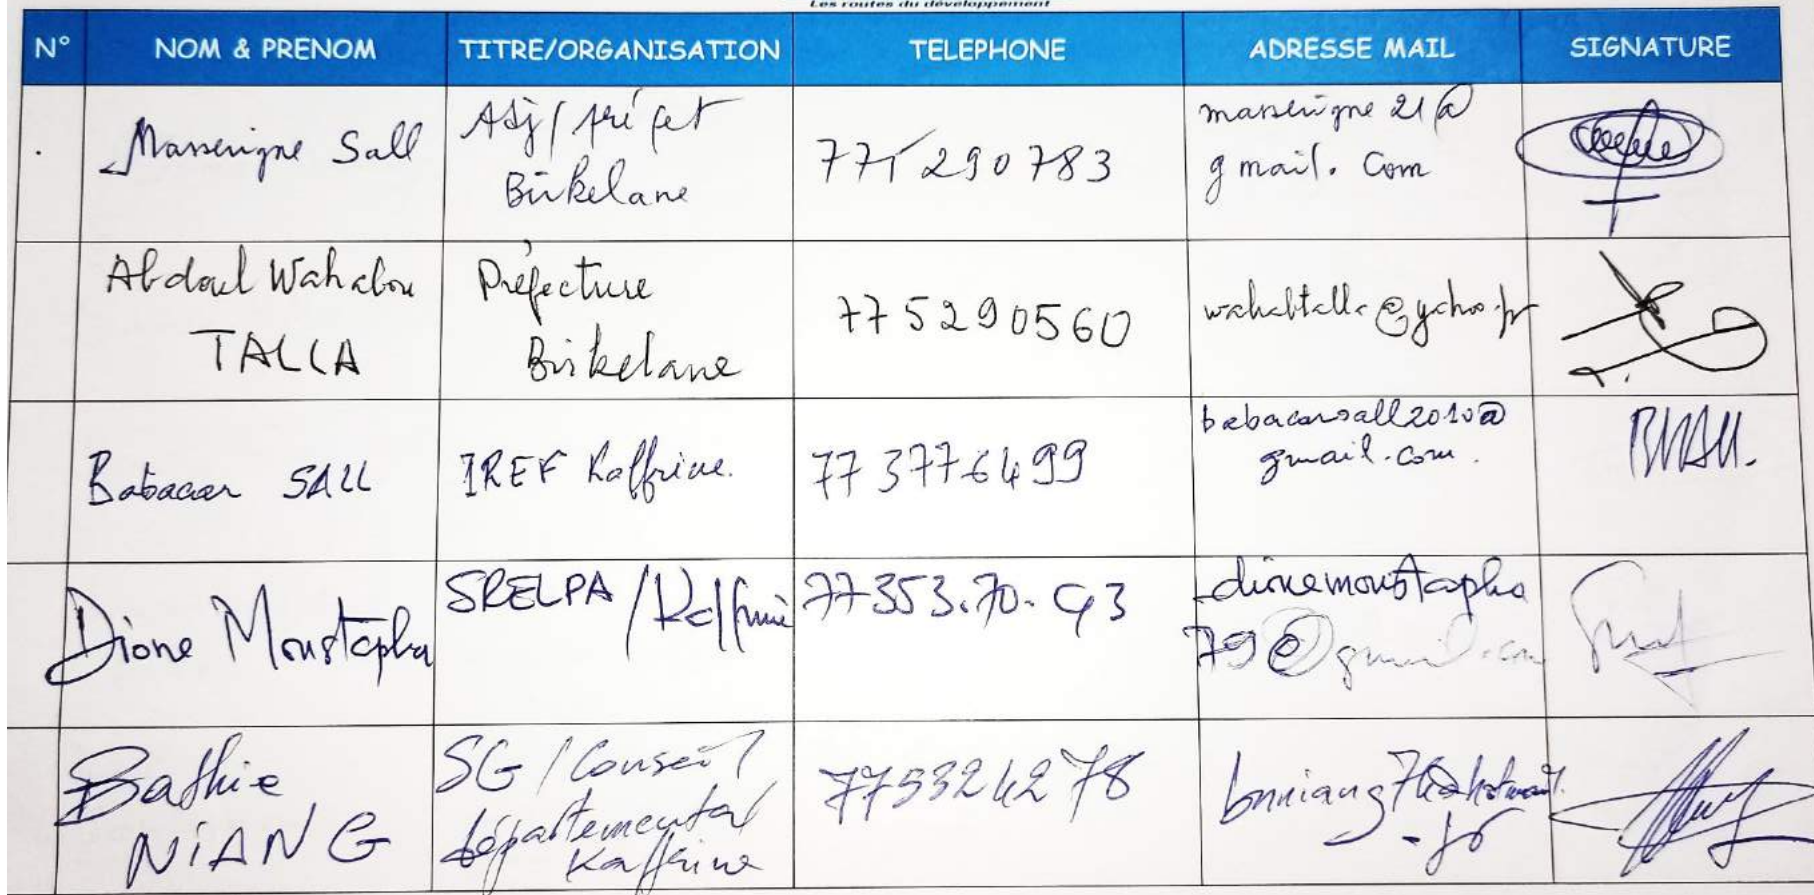 Les routes du développement
N° NOM & PRENOM TITRE/ORGANISATION TELEPHONE ADRESSE MAIL SIGNATURE
Masserigne Sall
Adj/préfet
Birkelane
775290783
masserigne 21@
gmail.com
Abdoul Wahabou
TALLA
Préfecture
Birkelane
775290560
wahabtalla@yahoo.fr
Babacar SALL
IREF Kaffrine.
773776499
babacarsall2010@
gmail.com.
Dione Moustapha
SRELPA/Kaffrine
77353.70.93
dionemoustapha
79@gmail.com
Bathie
NIANG
SG/Conseil
départemental
Kaffrine
775324278
bnniang76@hotmail.
fr